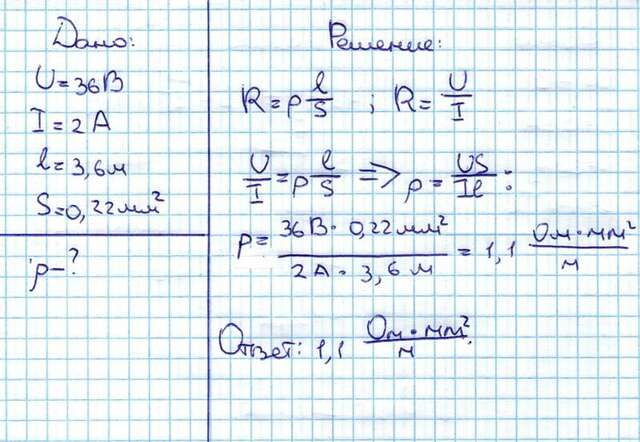 Дано:
U=36В
I=2А
l=3,6м
S=0,22мм²
ρ-?
Решение:
R=ρ l/S ; R= U/I
U/I=ρ l/S => ρ= US/Il :
ρ= 36В·0,22мм²/2А·3,6м = 1,1 Ом·мм²/м
Ответ: 1,1 Ом·мм²/м.